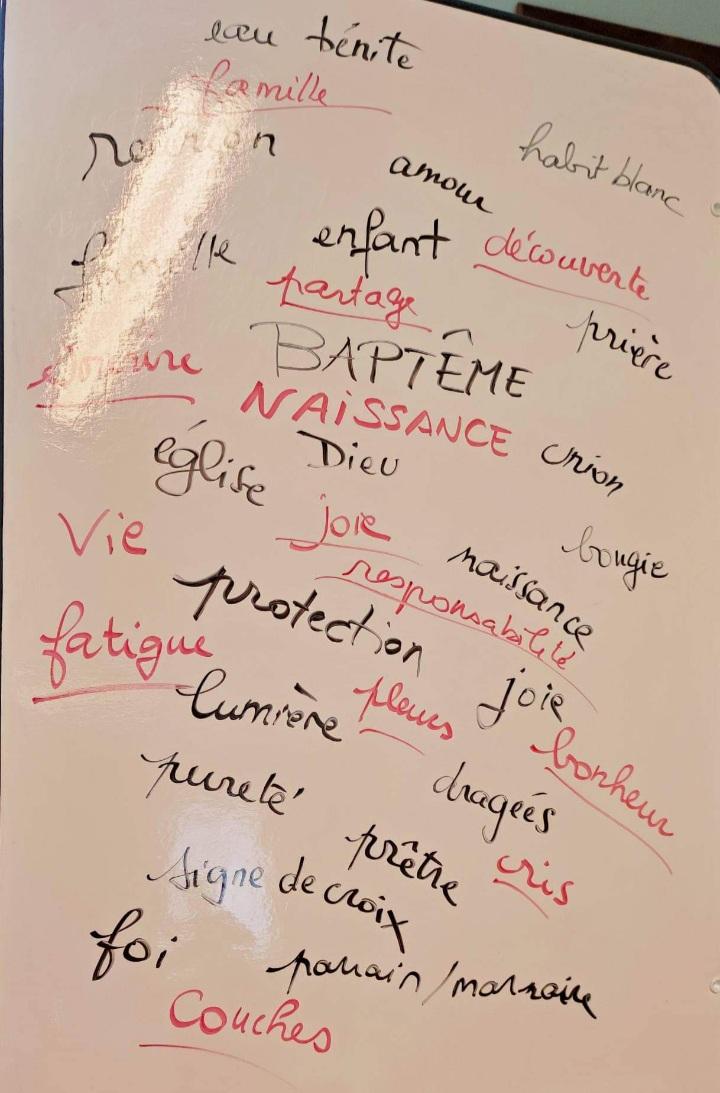 eau bénite
famille
réunion
habit blanc
amour
famille
enfant
découverte
partage
prière
BAPTÊME
NAISSANCE
union
Dieu
église
Vie
joie
bougie
naissance
responsabilité
protection
fatigue
joie
lumière
pleurs
bonheur
pureté
dragées
prêtre
cris
signe de croix
foi
parrain/marraine
Couches